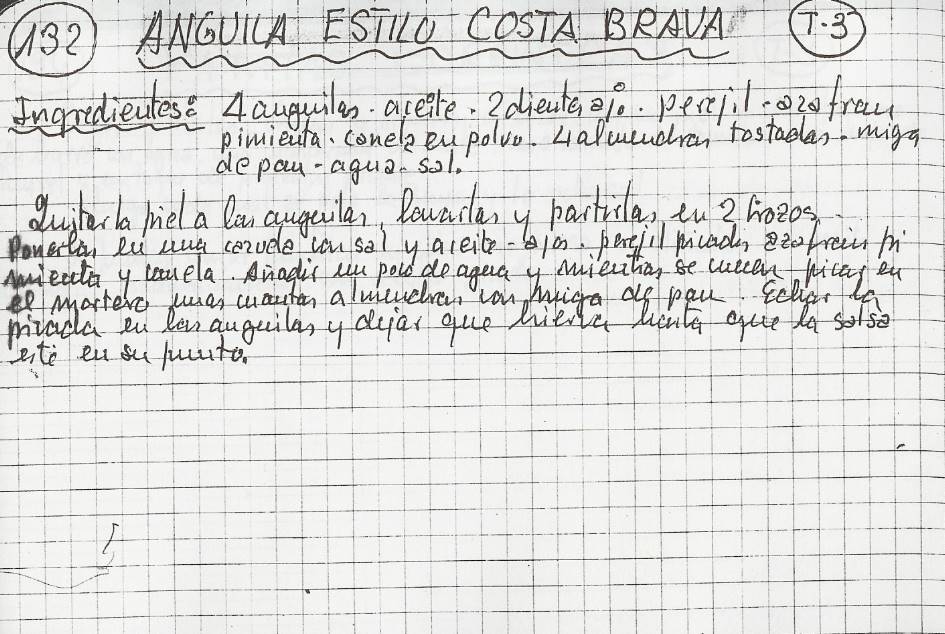 132 ANGUILA ESTILO COSTA BRAVA T-3
Ingredientes: 4 anguilas - aceite - 2 dientes ajo - perejil - azafran
pimienta - canela en polvo - 4 almendras tostadas - miga
de pan - agua - sal.
Quitar la piel a las anguilas, lavarlas y partirlas en 2 trozos.
Ponerlas en una cazuela con sal y aceite - ajos - perejil picado, azafrain pi
mienta y canela. Añadir un poco de agua y mientras se cuecen picar en
el mortero unas cuantas almendras con miga de pan. Echar la
picada en las anguilas y dejar que hierva hasta que la salsa
esté en su punto.